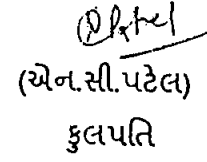 (એન.સી.પટેલ)
કુલપતિ